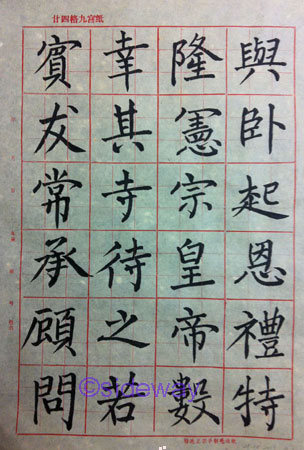 紙宮九格四廿
與臥起恩禮特
隆憲宗皇帝數
幸其寺待之若
賓友常承顧問
©sideway